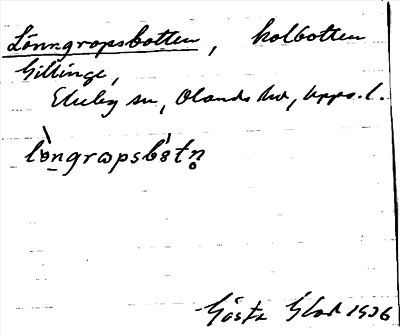 Lönngropsbotten, kolbotten
Gillinge,
Ekeby sn, Olands hd, Upps. l.
lòngrɷpsbòtn̥
Gösta Glad 1936